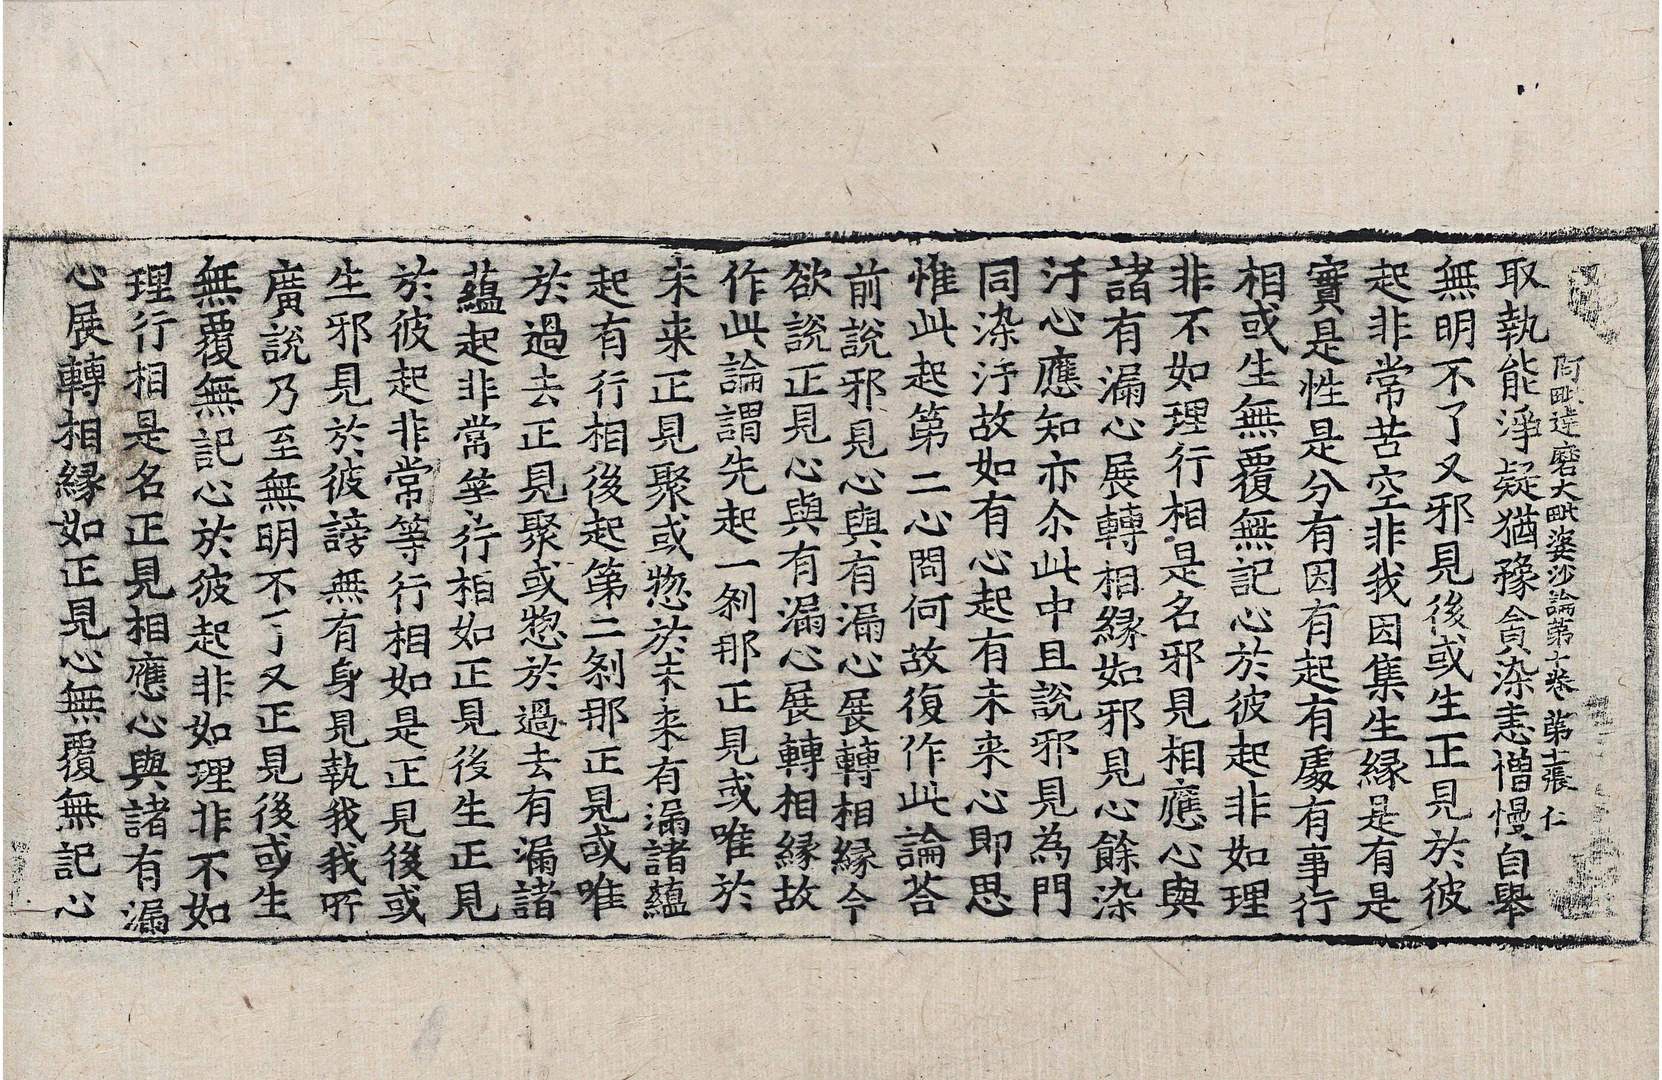 阿毗達磨大毗婆沙論第十卷 第十二張 仁
取執能淨疑猶豫貪染恚憎慢自舉
無明不了又邪見後或生正見於彼
起非常苦空非我因集生緣是有是
實是性是分有因有起有處有事行
相或生無覆無記心於彼起非如理
非不如理行相是名邪見相應心與
諸有漏心展轉相緣如邪見心餘染
汙心應知亦尒此中且說邪見為門
同染汙故如有心起有未来心即思
惟此起第二心問何故復作此論荅
前說邪見心與有漏心展轉相緣今
欲說正見心與有漏心展轉相緣故
作此論謂先起一剎那正見或唯於
未来正見聚或惣於未来有漏諸蘊
起有行相後起第二剎那正見或唯
於過去正見聚或惣於過去有漏諸
蘊起非常等行相如正見後生正見
於彼起非常等行相如是正見後或
生邪見於彼謗無有身見執我我所
廣說乃至無明不了又正見後或生
無覆無記心於彼起非如理非不如
理行相是名正見相應心與諸有漏
心展轉相緣如正見心無覆無記心